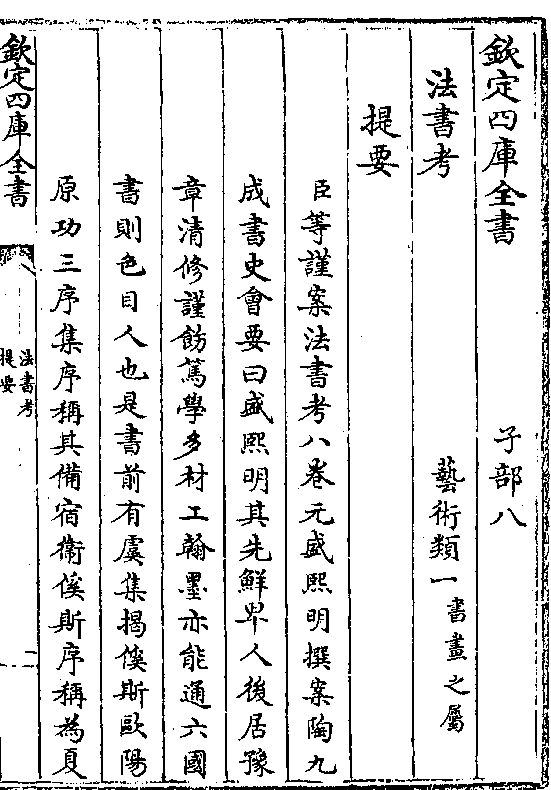 欽定四庫全書　子部八
法書考　藝術類一書畫之屬
提要
臣等謹案法書考八卷元盛熙明撰案陶九
成書史會要曰盛熙明其先鮮卑人後居豫
章清修謹飭篤學多材工翰墨亦能通六國
書則色目人也是書前有虞集揭傒斯歐陽
原功三序集序稱其備宿衞傒斯序稱為夏
欽定四庫全書
法書考
提要
二